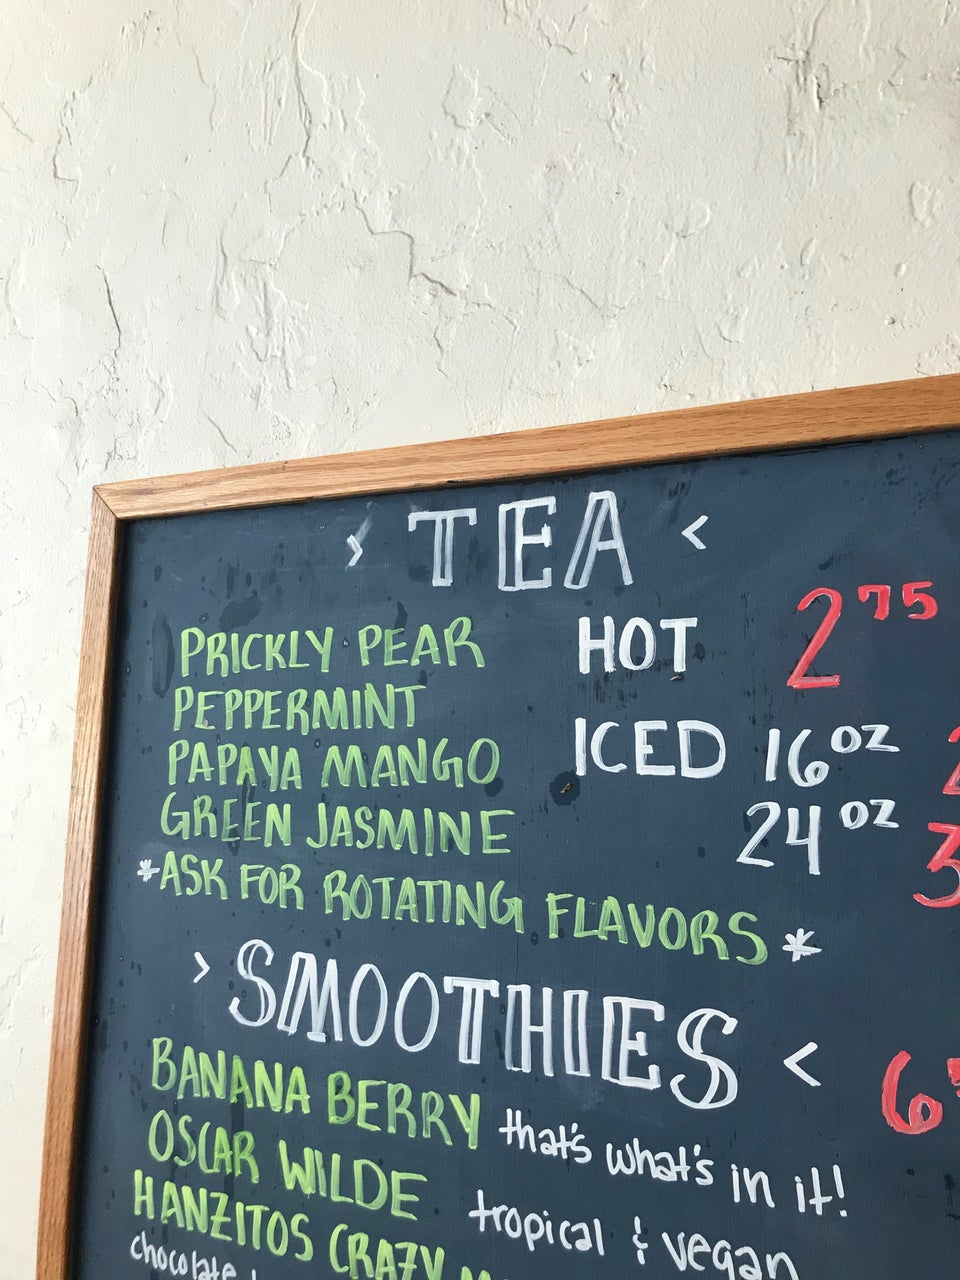 > TEA <
PRICKLY PEAR HOT 2 75
PEPPERMINT
PAPAYA MANGO ICED 16 oz 2
GREEN JASMINE 24 oz 3
*ASK FOR ROTATING FLAVORS *
> SMOOTHIES <
BANANA BERRY that's what's in it! 6
OSCAR WILDE tropical & vegan
HANZITOS CRAZY
chocolate